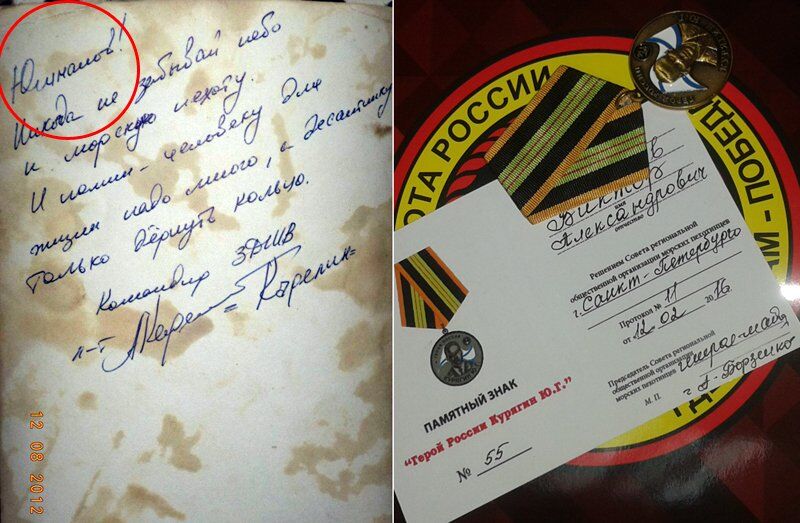 Юлчпалов!
Никогда не забывай небо
и морскую пехоту.
И помни - человеку для
жизни надо много, а десантнику
только дёрнуть кольцо.
Командир ЗДШВ
л-т
Карелин
12 08 2012
ОТА РОССИИ
ПОБЕД
Виктор
имя
Александрович
отчество
Решением Совета региональной
общественной организации морских пехотинцев
г. Санкт-Петербурга
Протокол № 11
от 12.02 2016
Председатель Совета региональной
общественной организации
морских пехотинцев
М.П.
ПАМЯТНЫЙ ЗНАК
"Герой России Курягин Ю.Г."
№ 55